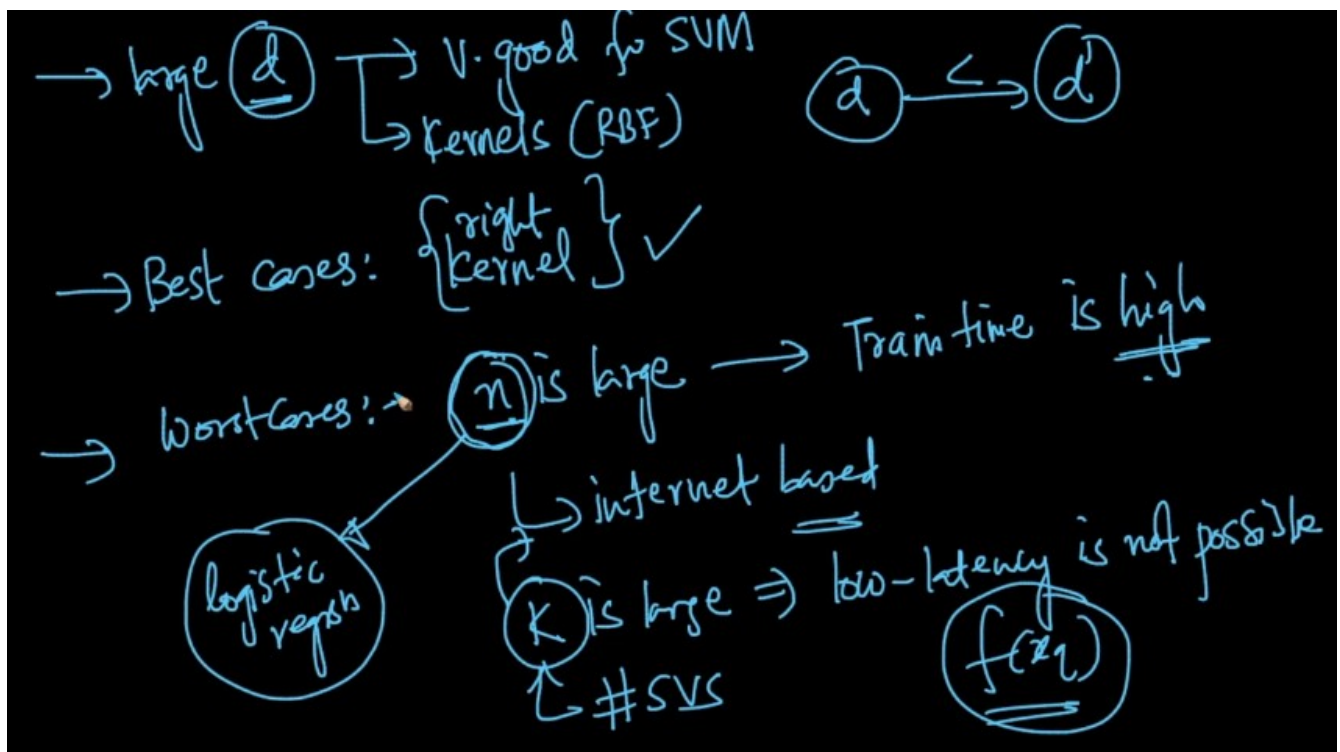 → large d → V. good for SVM
→ Kernels (RBF)
d < → d'
→ Best cases: { right kernel } ✓
→ Worst Cases: → n is large → Train time is high
→ internet based
logistic
K is large ⇒ low-latency is not possible
↳ #SVS
f(xq)